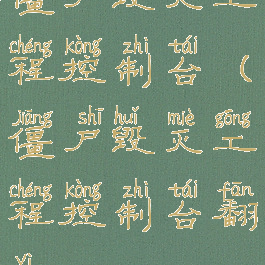 chéng kòng zhì tái
程控制台（
jiāng shī huǐ miè gōng
僵尸毁灭工
chéng kòng zhì tái fān
程控制台翻
yì